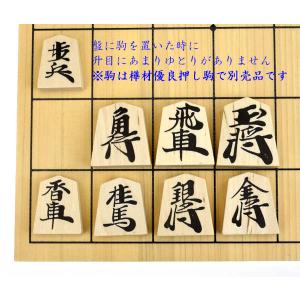 盤に駒を置いた時に
升目にあまりゆとりがありません
※駒は樺材優良押し駒で別売品です
歩兵
角行 飛車 玉将
香車 桂馬 銀将 金将